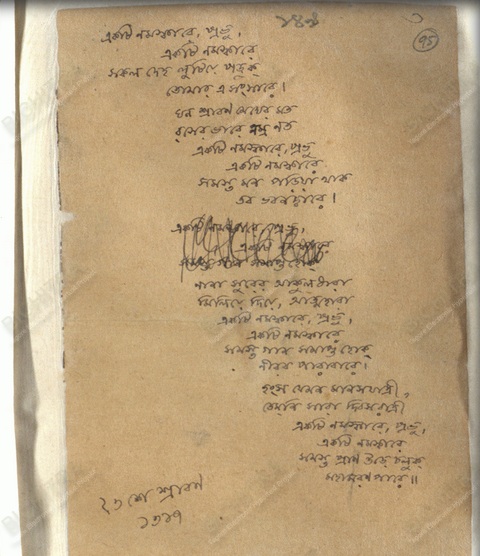 95
একটি নমস্কারে, প্রভু,
একটি নমস্কারে
সকল দেহ লুটিয়ে পড়ুক
তোমার এ সংসারে।
ঘন শ্রাবণ মেঘের মত
রসের ভারে নম্র নত
একটি নমস্কারে, প্রভু
একটি নমস্কারে
সমস্ত মন পড়িয়া থাক
তব ভবনদ্বারে।
একটি নমস্কারে, প্রভু,
একটি নমস্কারে
সমস্ত গান সমাপ্ত হোক
নানা সুরের আকুলধারা
মিলিয়ে দিয়ে, আত্মহারা
একটি নমস্কারে, প্রভু,
একটি নমস্কারে
সমস্ত গান সমাপ্ত হোক্
নীরব পারাবারে।
হংস যেমন মানসযাত্রী,
তেমনি সারা দিবসরাত্রী
একটি নমস্কারে, প্রভু,
একটি নমস্কারে
সমস্ত প্রাণ উড়ে চলুক্
মহামরণ পারে॥
২৩ শে শ্রাবণ
১৩১৭